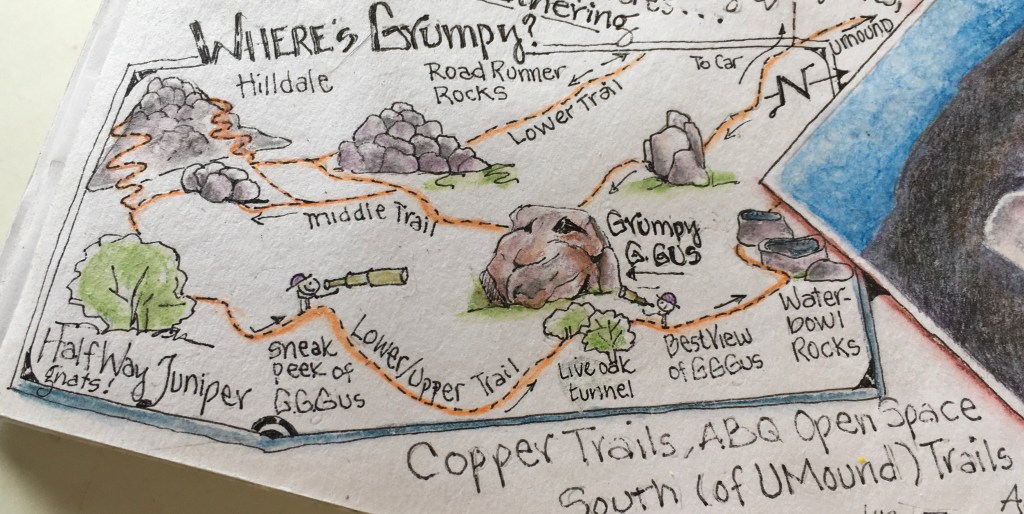 thering
WHERE'S Grumpy?
Hilldale
Road Runner
Rocks
Lower Trail
To Car
umound
N
middle Trail
Grumpy
G.GUS
HalfWay Juniper
gnats!
sneak
peek of
G.G.Gus
Lower/Upper Trail
Live oak
tunnel
Best View
of G.G.Gus
Water-
bowl
Rocks
Copper Trails, ABQ Open Space
South (of UMound) Trails